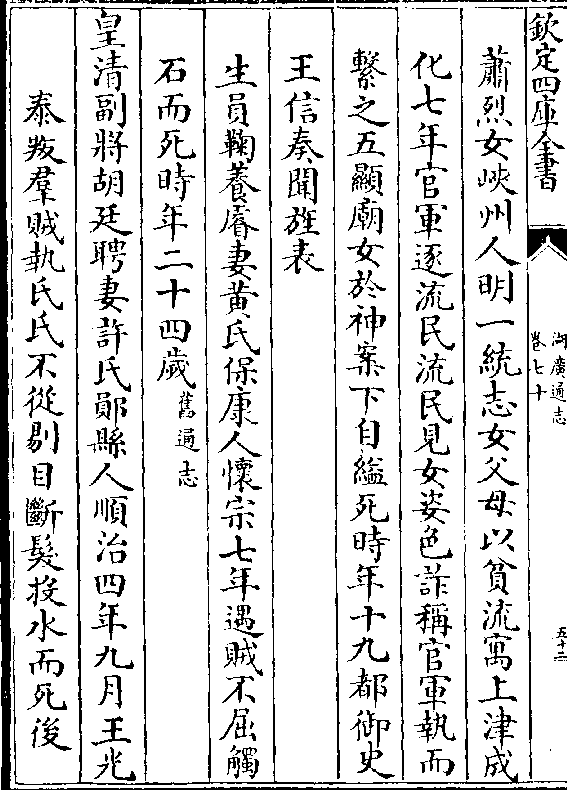 欽定四庫全書
湖廣通志
卷七十
五十二
蕭烈女峽州人明一統志女父母以貧流寓上津成
化七年官軍逐流民流民見女姿色詐稱官軍執而
繫之五顯廟女於神案下自縊死時年十九都御史
王信奏聞旌表
生員鞠養㢙妻黄氏保康人懷宗七年遇賊不屈觸
石而死時年二十四歲舊通志
皇清副將胡廷聘妻許氏鄖縣人順治四年九月王光
泰叛羣賊執氏氏不從剔目斷髮投水而死後